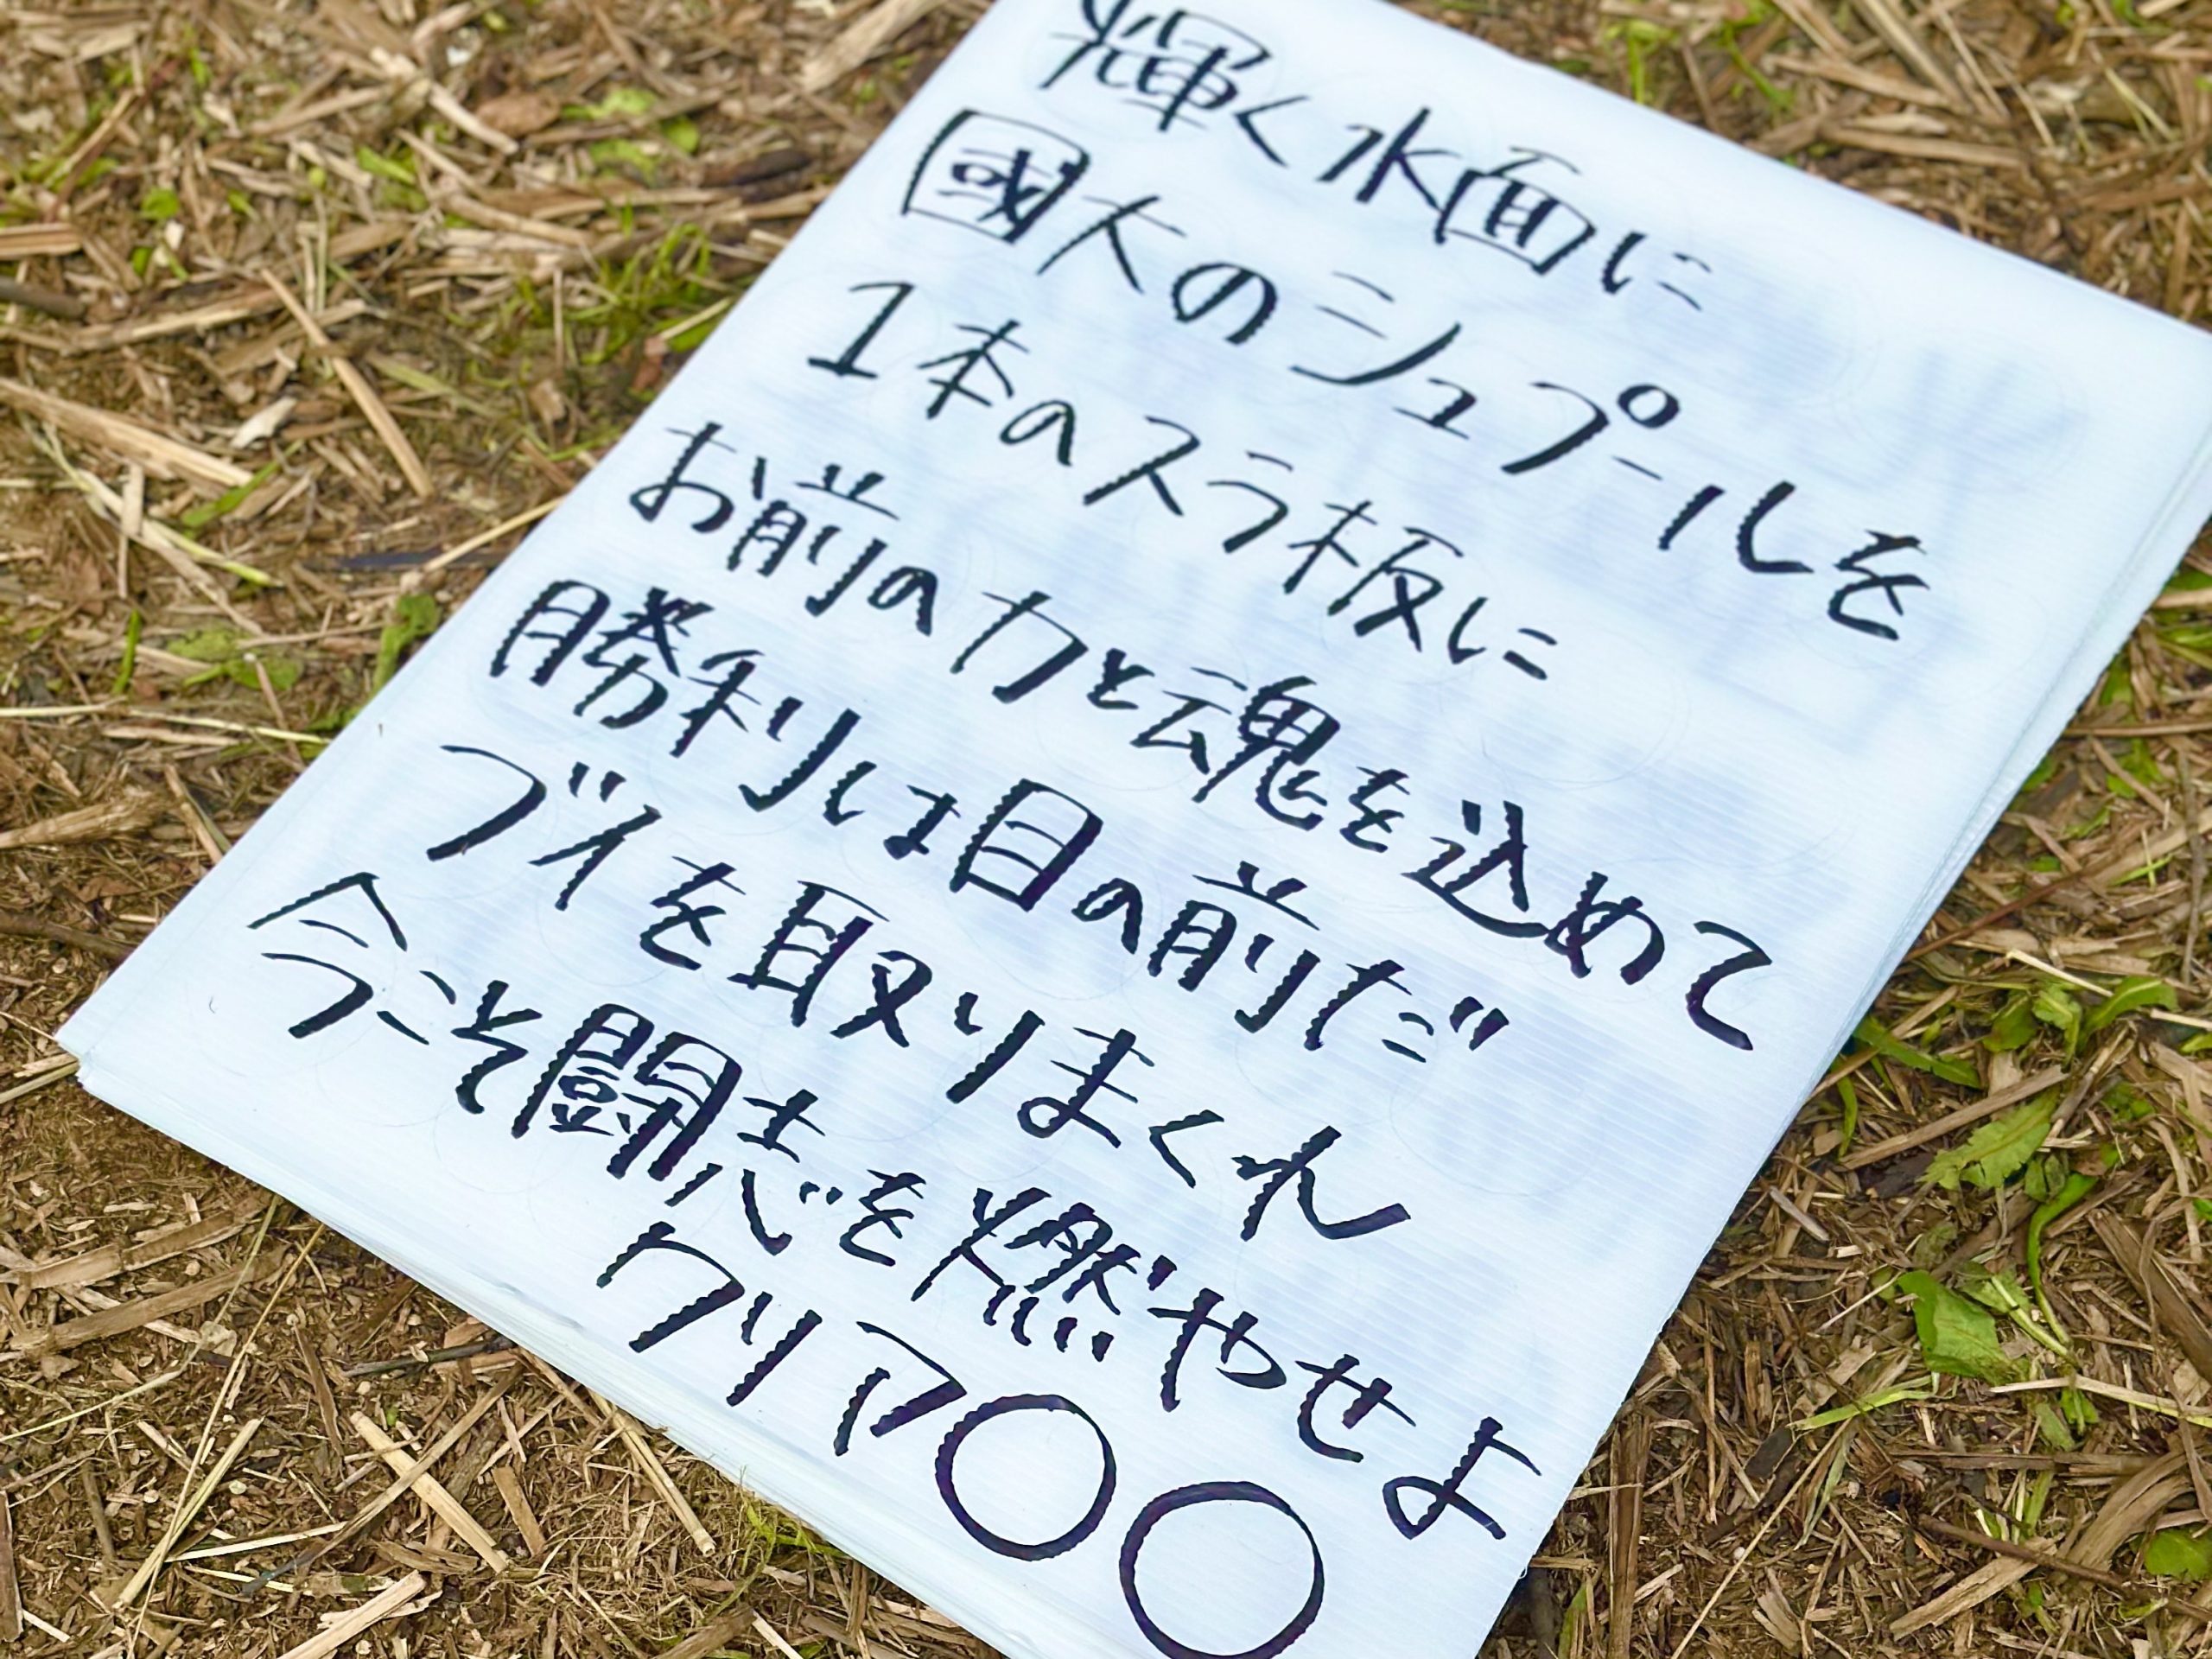 輝く水面に
國大のシュプールを
1本のスラ板に
お前の力と魂を込めて
勝利は目の前だ
ブイを取りまくれ
今こそ闘志を燃やせよ
クリア〇〇